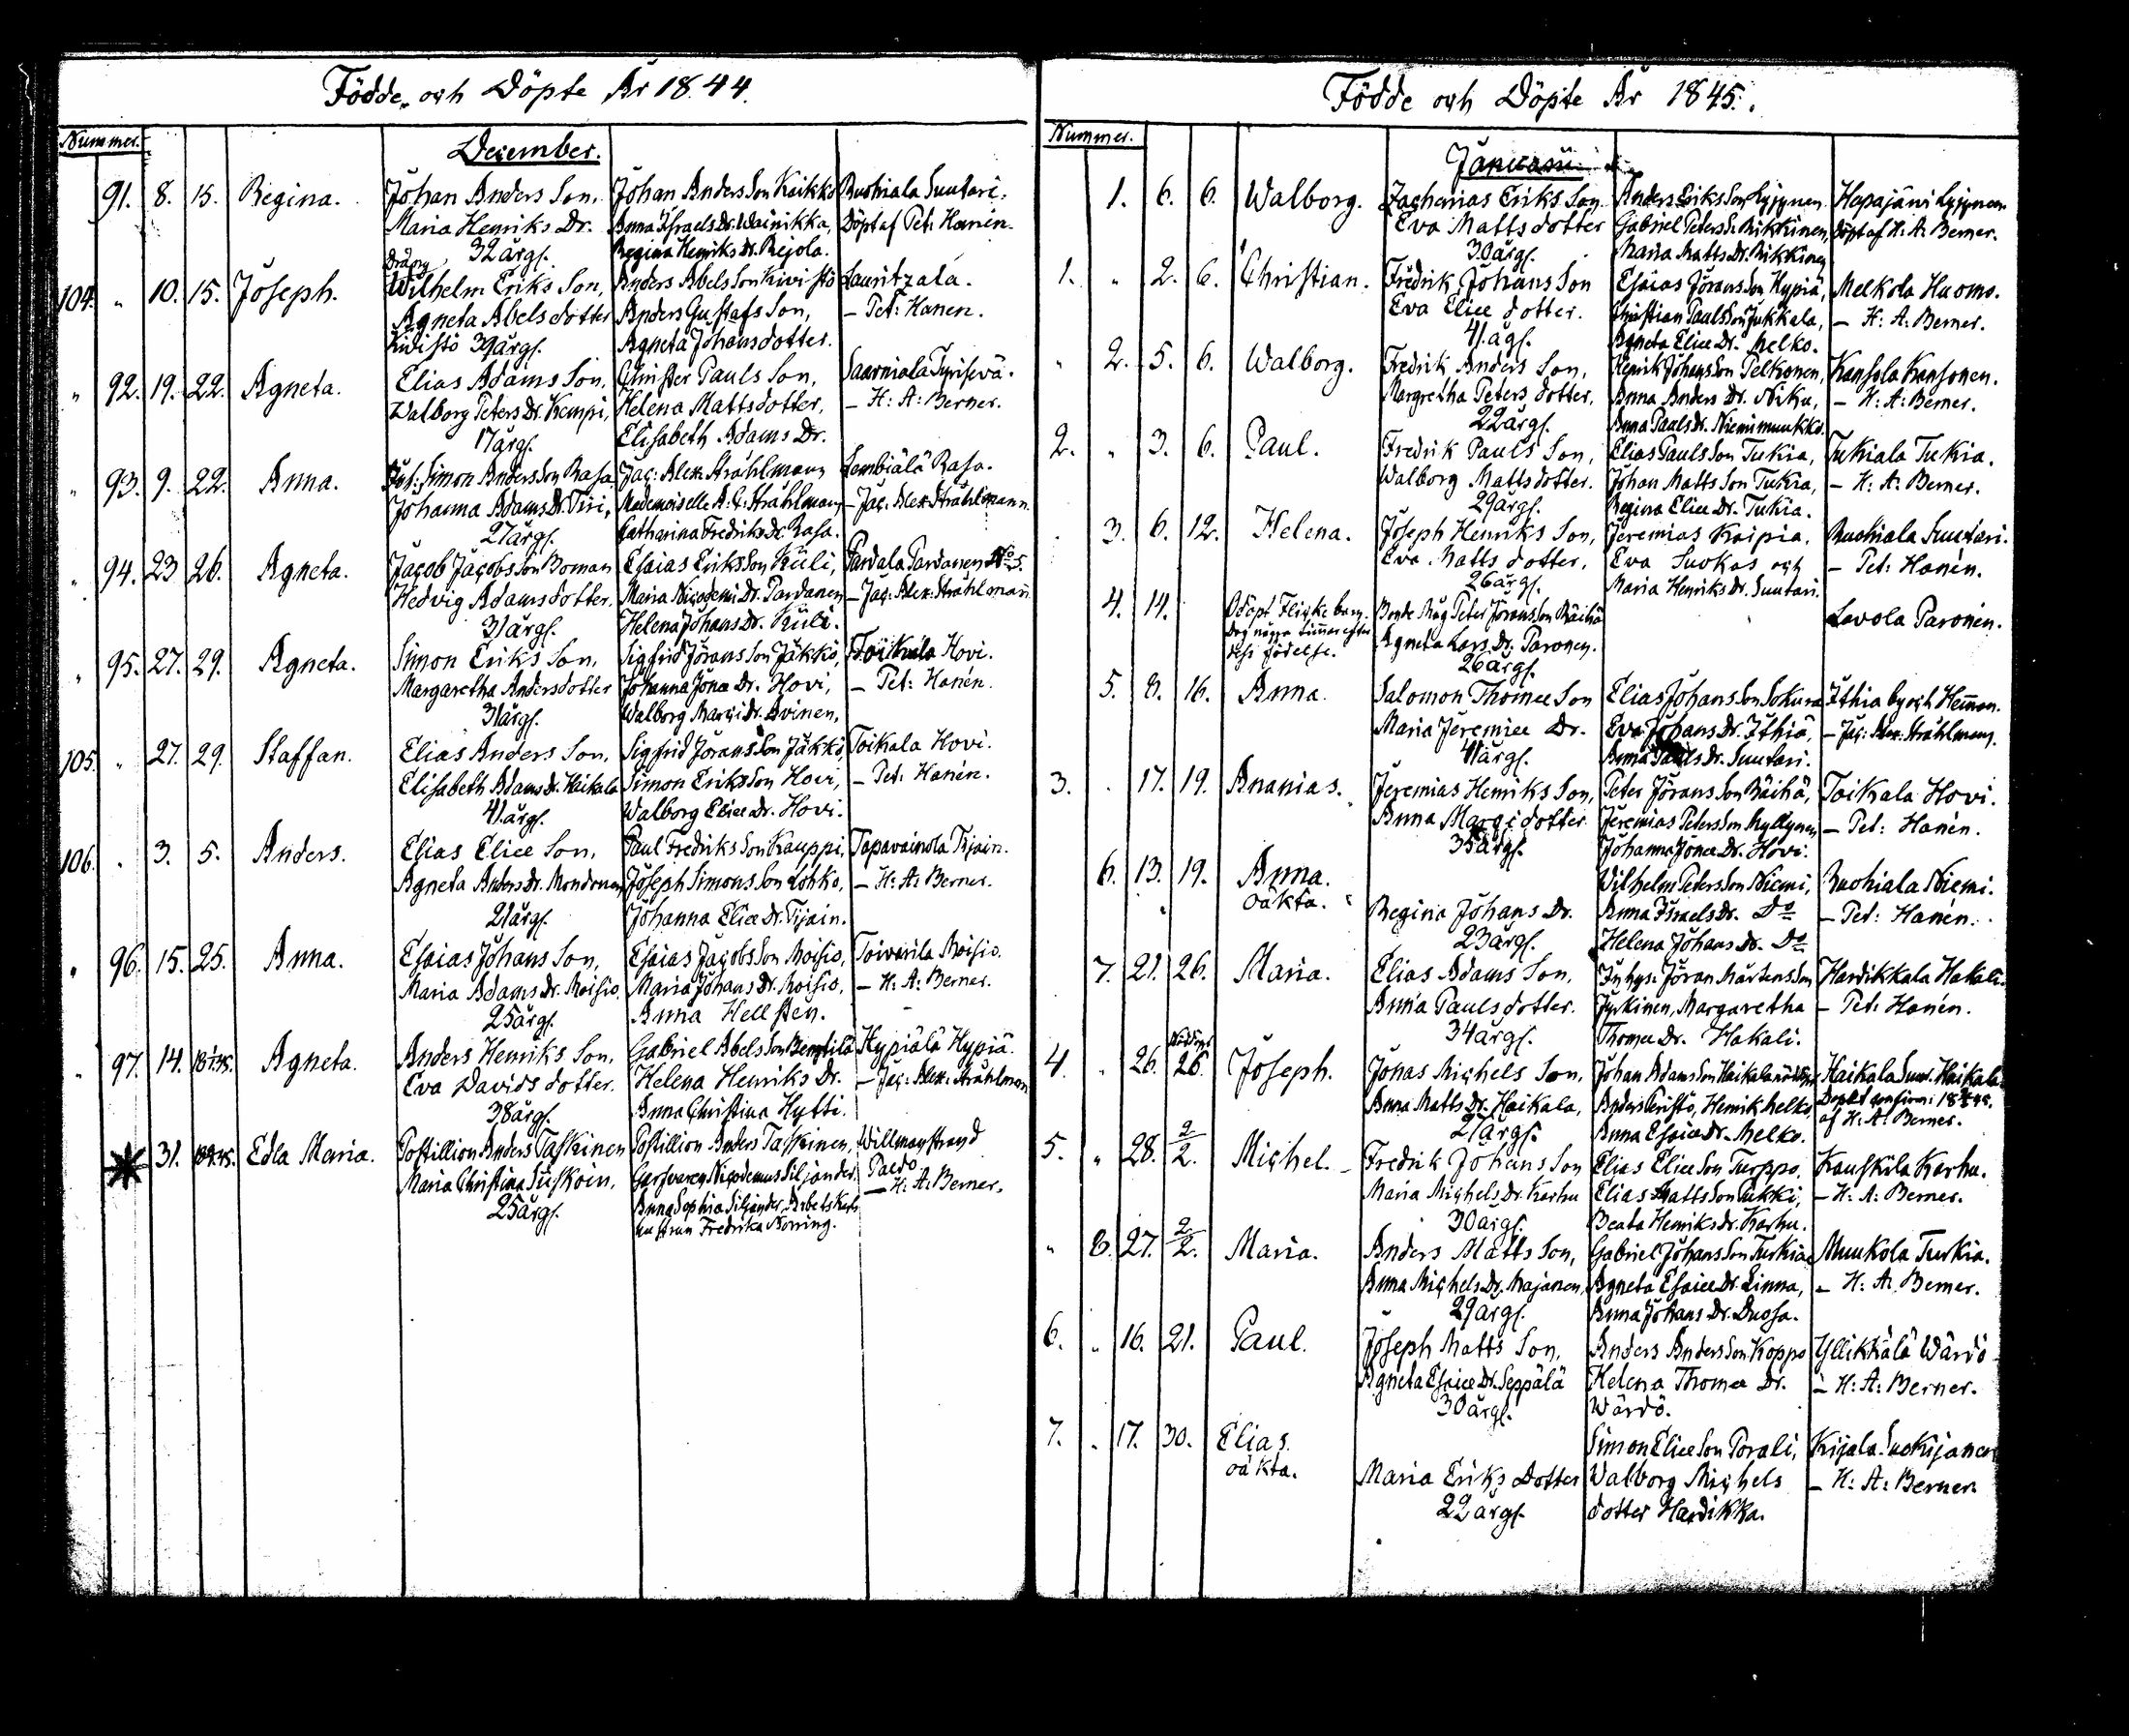 Födde och Döpte År 1844.
Nummer.
December.
91. 8. 15. Regina. Johan Anders Son, Johan Anders Son Kaikko Ruohiala Suutari.
Maria Henriks Dr. Anna Israels Dr. Wainikka, Döpt af Pet: Hanén.
32 årg. Regina Henriks Dr. Rejola.
Dräng
104. " 10. 15. Joseph. Wilhelm Eriks Son, Anders Abels Son Kivistö Lauritzala.
Agneta Abels dotter Anders Gustafs Son, – Pet: Hanen.
Kivistö 39 årg. Agneta Johans dotter.
" 92. 19. 22. Agneta. Elias Adams Son, Christer Pauls Son, Saarniala Tyrisevä.
Walborg Peters Dr. Kempi, Helena Matts dotter, – H: A: Berner.
17 årg. Elisabeth Adams Dr.
" 93. 9. 22. Anna. Simon Anders Son Rasa Jac: Alex: Stråhlmann Lembiälä Rasa.
Johanna Adams Dr. Tiri, Mademoiselle A: C: Stråhlmann – Jac: Alex: Stråhlmann.
27 årg. Catharina Fredriks Dr. Rasa.
" 94. 23 26. Agneta. Jacob Jacobs Son Boman Esaias Eriks Son Küli, Pardala Pardanen No 5.
Hedvig Adams dotter. Maria Nicodemi Dr. Pardanen – Jac: Alex: Stråhlmann
31 årg. Helena Johans Dr. Küli.
" 95. 27. 29. Agneta. Simon Eriks Son, Sigfrid Jörans Son Jäkkö, Toikala Hovi.
Margaretha Anders dotter Johanna Jonæ Dr. Hovi, – Pet: Hanén.
31 årg. Walborg Marci Dr. Avinen,
105. " 27. 29. Staffan. Elias Anders Son, Sigfrid Jörans Son Jäkkö, Toikala Hovi.
Elisabeth Adams Dr. Haikala Simon Eriks Son Hovi, – Pet: Hanén.
41 årg. Walborg Eliæ Dr. Hovi.
106. " 3. 5. Anders. Esias Eliæ Son, Paul Fredriks Son Kauppi, Tapavainola Tijain.
Agneta Anders Dr. Mondonen Joseph Simons Son Lohko, – H: A: Berner.
21 årg. Johanna Eliæ Dr. Tijain.
" 96. 15. 25. Anna. Esaias Johans Son, Esaias Jacobs Son Moisio, Toivarila Moisio.
Maria Adams Dr. Moisio, Maria Johans Dr. Moisio, – H: A: Berner.
25 årg. Anna Hellsten.
" 97. 14. Agneta. Anders Henriks Son, Gabriel Abels Son Benttilä Hypiälä Hypiä.
Eva Davids dotter. Helena Henriks Dr. – Jac: Alex: Stråhlman
38 årg. Anna Christina Hytti.
31. Edla Maria. Postillion Anders Taskinen Postillion Anders Taskinen, Willmanstrand
Maria Christina Suskoin, Nicodemus Siljander, Paldo
25 årg. Anna Sophia Siljander, – H: A: Berner.
hustrun Fredrika Noring.
Födde och Döpte År 1845.
Nummer.
Januarii
1. 6. 6. Walborg. Zacharias Eriks Son Anders Eriks Son Lyijynen Hapajärvi Lyijynen
Eva Matts dotter Gabriel Peters Son Rikkinen, döpt af H. A. Berner.
30 årg. Maria Matts Dr. Rikkinen
1. " 2. 6. Christian. Fredrik Johans Son Esaias Jörans Son Hypiä, Melkola Huomo.
Eva Eliæ dotter. Christian Pauls Son Jukkala, – H: A: Berner.
41 årg. Agneta Eliæ Dr. Melko.
" 2. 5. 6. Walborg. Fredrik Anders Son, Henrik Johans Son Pelkonen, Kansola Kansonen.
Margretha Peters dotter, Anna Anders Dr. Niku, – H: A: Berner.
22 årg. Anna Pauls Dr. Niemimuukko.
2. " 3. 6. Paul. Fredrik Pauls Son, Elias Pauls Son Tukia, Tukiala Tukia.
Walborg Matts dotter. Johan Matts Son Tukia, – H: A: Berner.
29 årg. Regina Eliæ Dr. Tukia.
3. 6. 12. Helena. Joseph Henriks Son, Jeremias Kaipia, Ruohiala Suutari.
Eva Matts dotter, Eva Suokas och – Pet: Hanén.
26 årg. Maria Henriks Dr. Suutari.
4. 14. Odöpt Flicke barn. Bonde Måg Peter Jörans Son Räihä Lavola Paronen.
Dog några timmar efter Agneta Lars Dr. Paronen.
dess födelse. 26 årg.
5. 8. 16. Anna. Salomon Thomæ Son Elias Johans Son Sokura Ithia by och Hemman.
Maria Jeremiæ Dr. Eva Johans Dr. Ithiä, – Jac: Alex: Stråhlmann.
41 årg. Anna Pauls Dr. Suutari.
3. " 17. 19. Ananias. Jeremias Henriks Son, Peter Jörans Son Räihä, Toikala Hovi.
Anna Marci dotter Jeremias Peters Son Kyllynen – Pet: Hanén.
35 årg. Johanna Jonæ Dr. Hovi.
6. 13. 19. Anna. Wilhelm Peters Son Niemi, Ruohiala Niemi.
oäkta. Regina Johans Dr. Anna Israels Dr. Do – Pet: Hanén.
23 årg. Helena Johans Dr. Do
7. 21. 26. Maria. Elias Adams Son, Inhys: Jöran Mårtens Son Hardikkala Hakali.
Anna Pauls dotter. Jyrkinen, Margaretha – Pet: Hanén.
34 årg. Thomæ Dr. Hakali.
4. " 26. 26. Joseph. Jonas Michels Son, Johan Adams Son Haikala Haikala Haikala
Anna Matts Dr. Haikala, Anders Henrik Melko,
27 årg. Anna Esaiæ Dr. Melko. af H: A: Berner.
5. " 28. 2/2. Michel. Fredrik Johans Son Elias Eliæ Son Turppo, Kauskila Karhu.
Maria Michels Dr. Karhu Elias Matts Son Pukki, – H: A: Berner.
30 årg. Beata Henriks Dr. Karhu.
" 8. 27. 2/2. Maria. Anders Matts Son, Gabriel Johans Son Turkia Muukola Turkia.
Anna Michels Dr. Majanen, Agneta Esaiæ Dr. Linna, – H: A: Berner.
29 årg. Anna Johans Dr. Duosa.
6. " 16. 21. Paul. Joseph Matts Son, Anders Anders Son Koppo Yllikkälä Wärdö
Agneta Esaiæ Dr. Seppälä Helena Thomæ Dr. – H: A: Berner.
30 årg. Wärdö.
7. " 17. 30. Elias. Simon Eliæ Son Porali, Kijala Suokijanen
oäkta. Maria Eriks Dotter Walborg Michels – H: A: Berner
22 årg. dotter Hardikka.